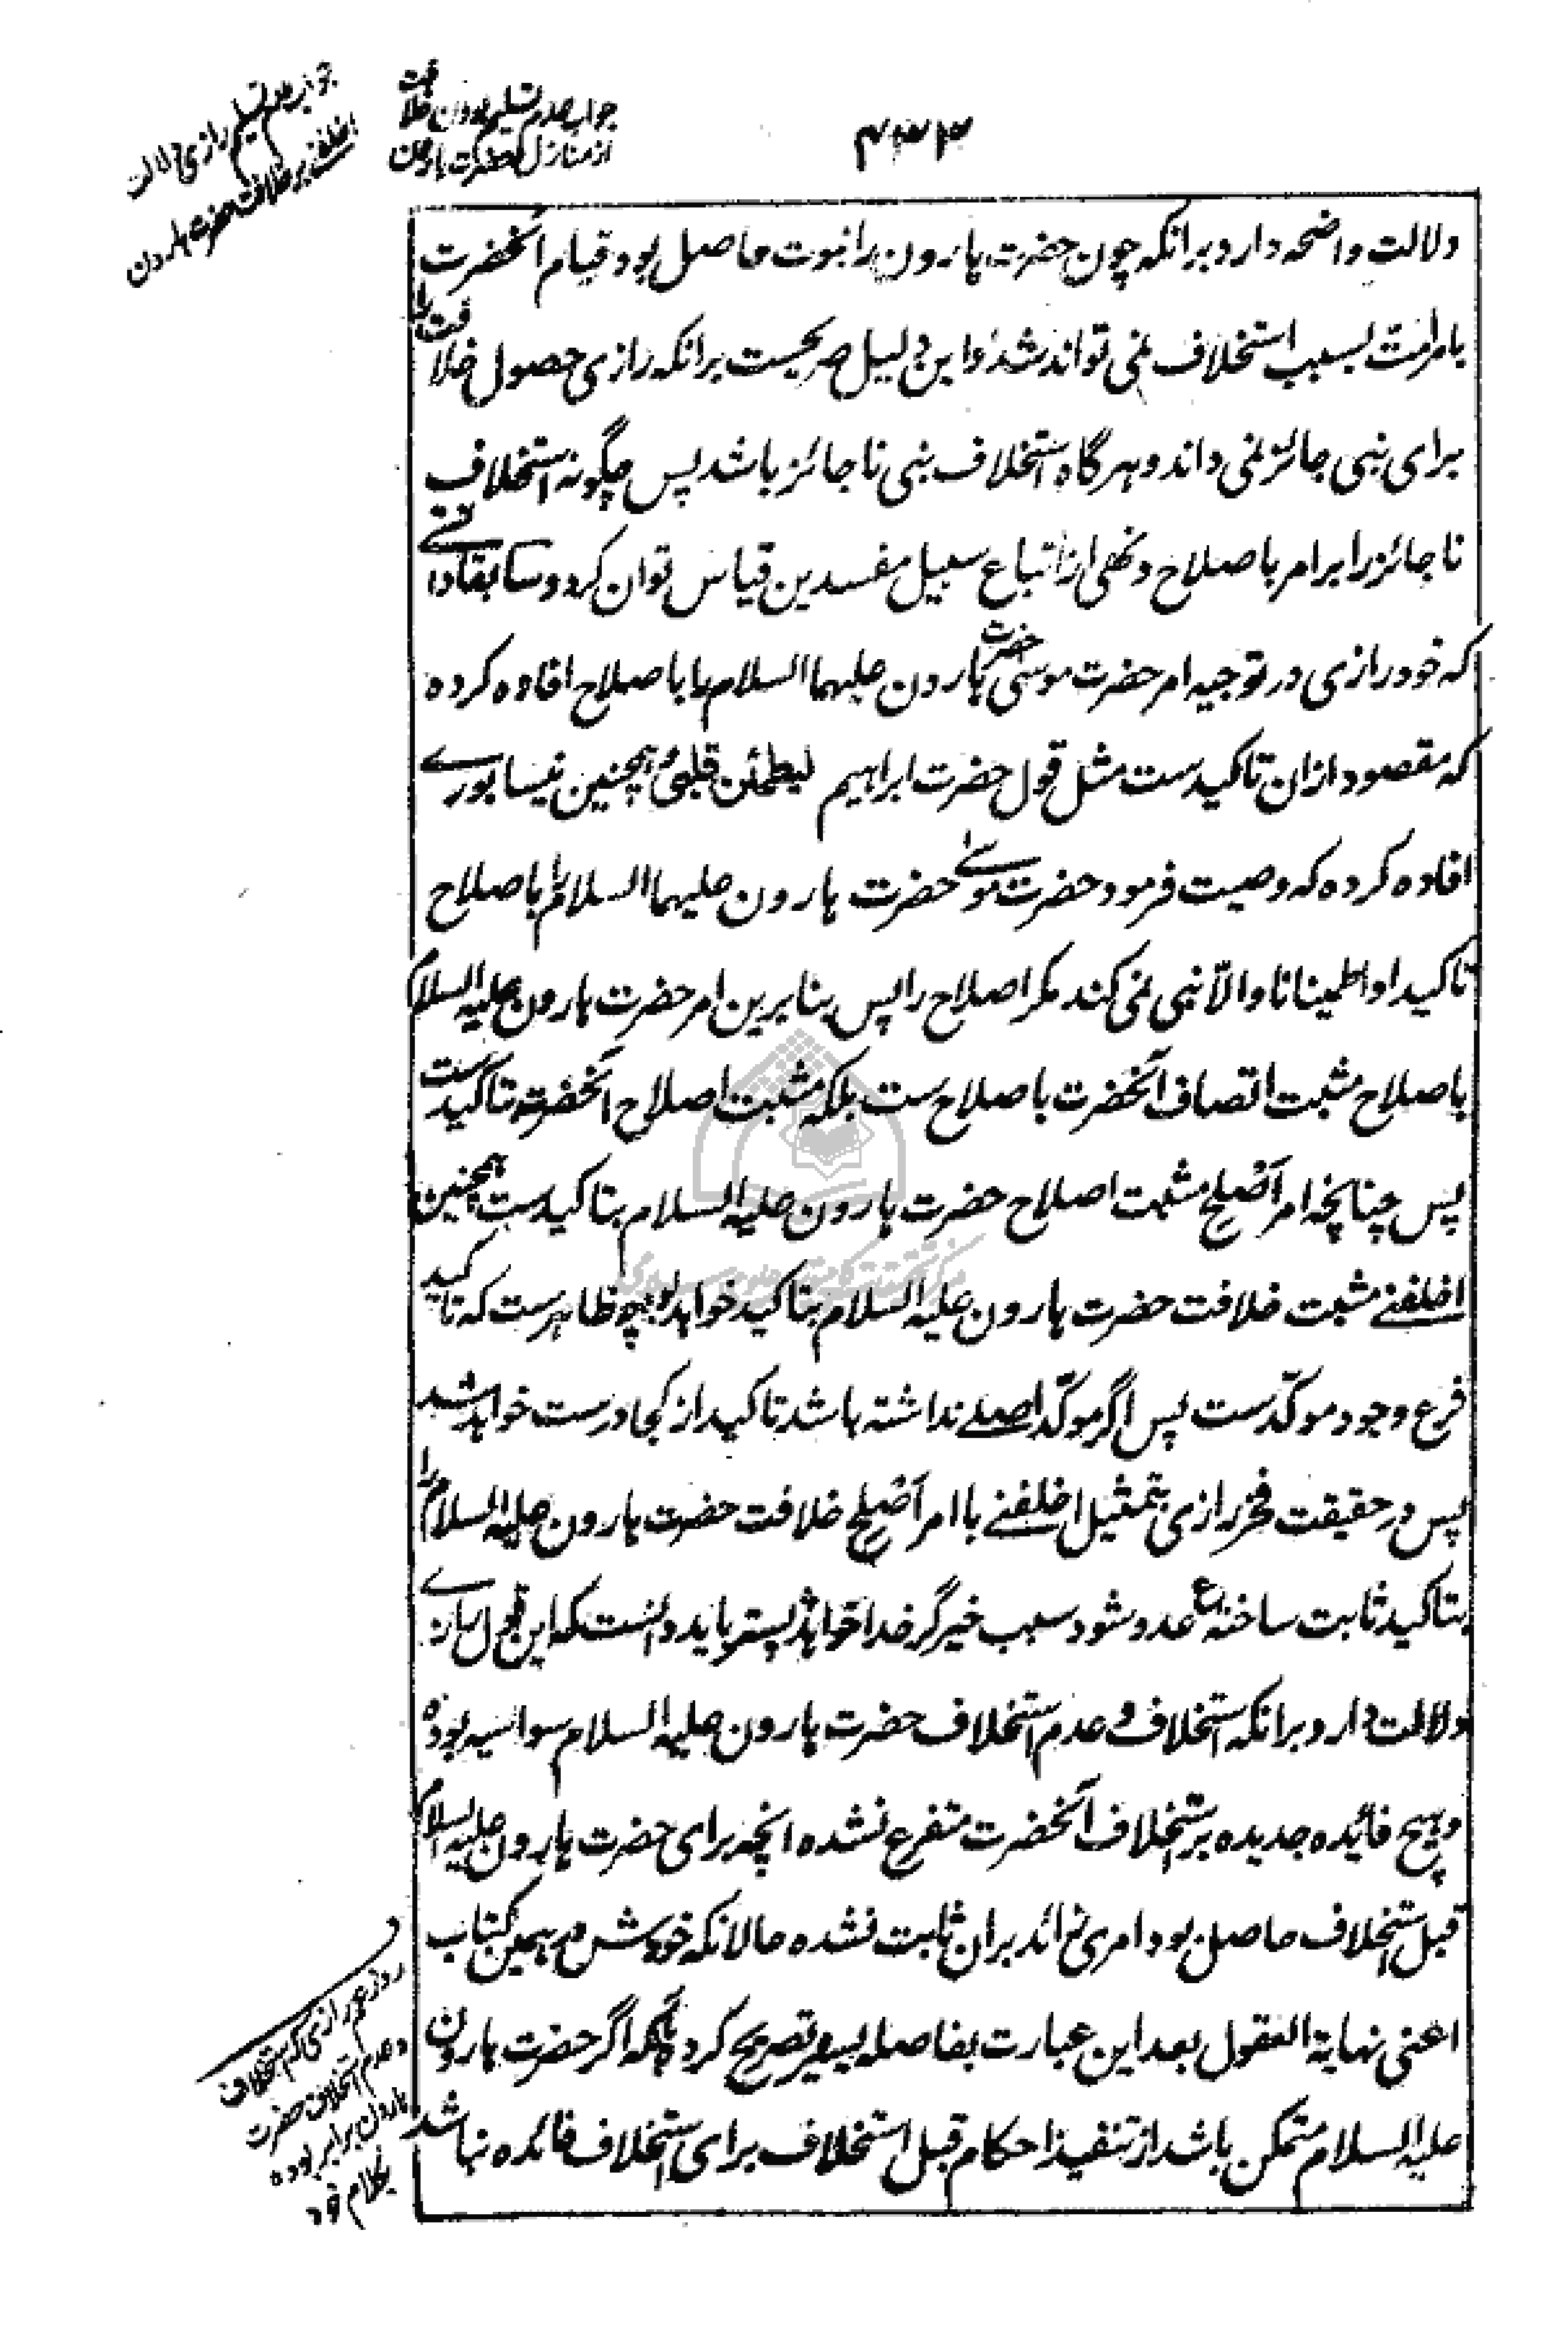 ۴۳۳
جواب عدم تسلیم بودن خلافت
از منازل حضرت هارون
جواب عدم تسلیم رازی دلالت
اخلفنی بر خلافت حضرت هارون
دلالت واضحه دارد برانکه چون حضرت هارون را نبوت حاصل بود قیام آنحضرت
بامر امت بسبب استخلاف نمی تواند شد و این دلیل صریحست برانکه رازی حصول خلافت را
برای نبی جائز نمی داند و هرگاه استخلاف نبی ناجائز باشد پس چگونه استخلاف
ناجائز را بر امر باصلاح و نهی از اتباع سبیل مفسدین قیاس توان کرد و سابقا دانستی
که خود رازی در توجیه امر حضرت موسی حضرت هارون علیهما السلام را باصلاح افاده کرده
که مقصود ازان تاکیدست مثل قول حضرت ابراهیم لیطمئن قلبی و همچنین نیسابوری
افاده کرده که وصیت فرمود حضرت موسی حضرت هارون علیهما السلام را باصلاح
تاکیدا و اطمینانا و الّا نبی نمی کند مگر اصلاح را پس بنابرین امر حضرت هارون علیه السلام
باصلاح مثبت اتصاف آنحضرت باصلاح ست بلکه مثبت اصلاح آنحضرت بتاکیدست
پس چنانچه امر اَصْلِح مثبت اصلاح حضرت هارون علیه السلام بتاکیدست همچنین
اخلفنی مثبت خلافت حضرت هارون علیه السلام بتاکید خواهد بود چه ظاهرست که تاکید
فرع وجود موکّدست پس اگر موکّد اصلی نداشته باشد تاکید از کجا درست خواهد شد
پس در حقیقت فخر رازی بتمثیل اخلفنی با امر اَصْلِح خلافت حضرت هارون علیه السلام را
بتاکید ثابت ساخته ع عدو شود سبب خیر گر خدا خواهد پستر باید دانست که این قول رازی
دلالت دارد برانکه استخلاف و عدم استخلاف حضرت هارون علیه السلام سواسیه بوده
و هیچ فائده جدیده بر استخلاف آنحضرت متفرع نشده آنچه برای حضرت هارون علیه السلام
قبل استخلاف حاصل بود امری زائد بران ثابت نشده حالانکه خودش در همین کتاب
اعنی نهایة العقول بعد این عبارت بفاصله یسیر تصریح کرده بآنکه اگر حضرت هارون
علیه السلام متمکن باشد از تنفیذ احکام قبل استخلاف برای استخلاف فائده نباشد
رد زعم رازی که استخلاف
و عدم استخلاف حضرت
هارون برابر بوده
بکلام خود